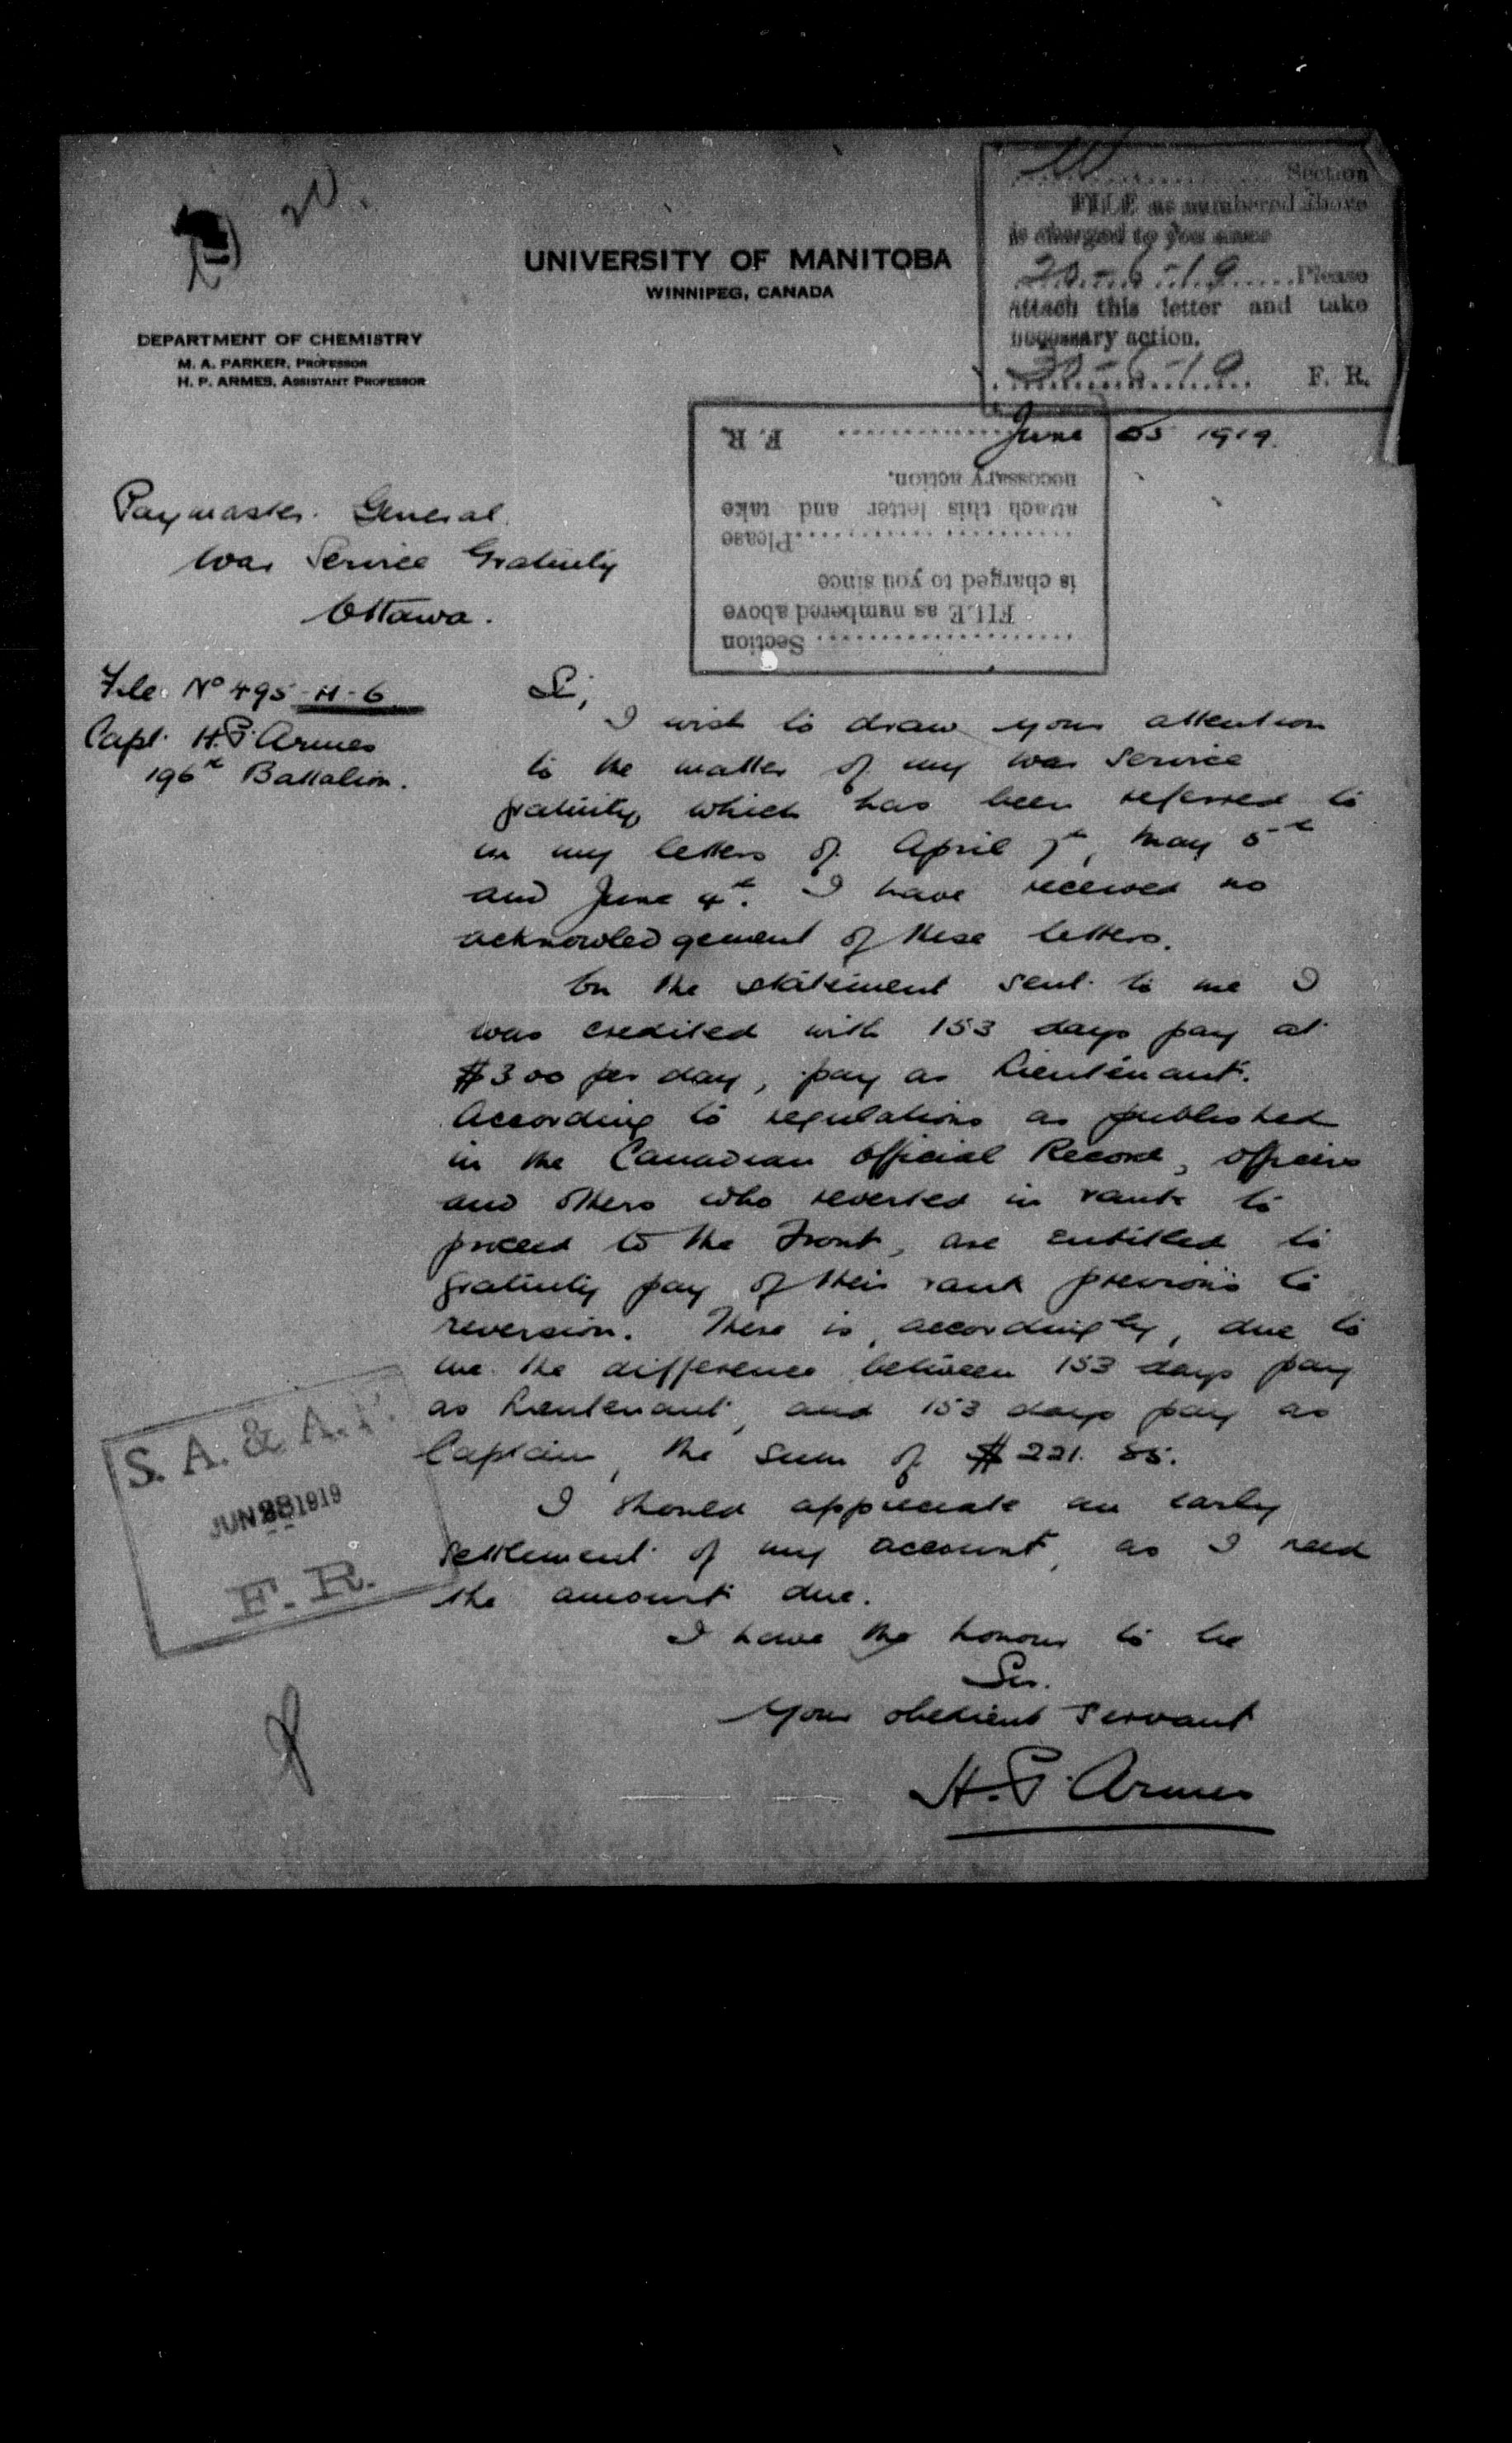 20.
UNIVERSITY OF MANITOBA
WINNIPEG, CANADA
DEPARTMENT OF CHEMISTRY
M. A. PARKER, PROFESSOR
H. P. ARMES, ASSISTANT PROFESSOR
Section
FILE as numbered above
is charged to you since
Please
attach this letter and take
necessary action.
F. R.
June 25 1919.
Section
FILE as numbered above
is charged to you since
Please
attach this letter and take
necessary action.
F. R.
Paymaster General
War Service Gratuity
Ottawa.
File No 495-H-6
Capt. H.P. Armes
196th Battalion.
Sir,
I wish to draw your attention
to the matter of my War Service
gratuity which has been referred to
in my letters of April 7th, May 5th
and June 4th. I have received no
acknowledgement of these letters.
On the statement sent to me I
was credited with 153 days pay at
$3.00 per day, pay as Lieutenant.
According to regulations as published
in the Canadian Official Record, officers
and others who reverted in rank to
proceed to the Front, are entitled to
gratuity pay of their rank previous to
reversion. There is, accordingly, due to
me the difference between 153 days pay
as Lieutenant, and 153 days pay as
Captain, the sum of $221.85.
I should appreciate an early
settlement of my account, as I need
the amount due.
I have the honour to be
Sir.
Your obedient servant
H. P. Armes
S. A. &
JUN 28 1919
F. R.